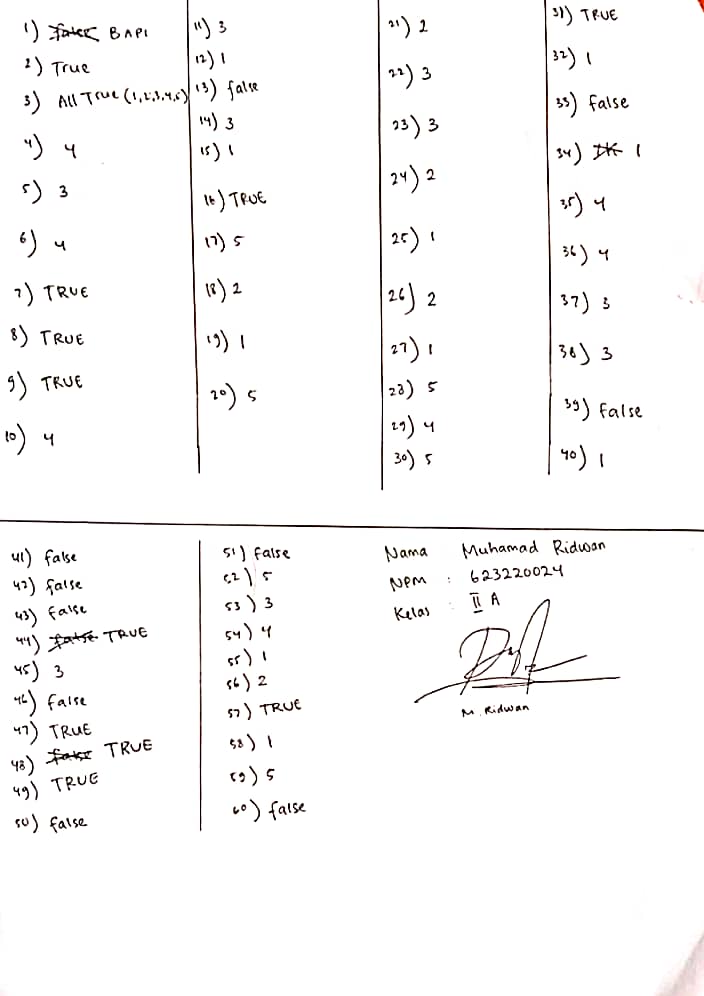 1) false BAPI
2) True
3) All True (1,2,3,4,5)
4) 4
5) 3
6) 4
7) TRUE
8) TRUE
9) TRUE
10) 4
11) 3
12) 1
13) false
14) 3
15) 1
16) TRUE
17) 5
18) 2
19) 1
20) 5
21) 2
22) 3
23) 3
24) 2
25) 1
26) 2
27) 1
28) 5
29) 4
30) 5
31) TRUE
32) 1
33) false
34) 1
35) 4
36) 4
37) 3
38) 3
39) false
40) 1
41) false
42) false
43) false
44) false TRUE
45) 3
46) false
47) TRUE
48) false TRUE
49) TRUE
50) false
51) false
52) 5
53) 3
54) 4
55) 1
56) 2
57) TRUE
58) 1
59) 5
60) false
Nama Muhamad Ridwan
NPM : 623220024
Kelas : II A
M. Ridwan